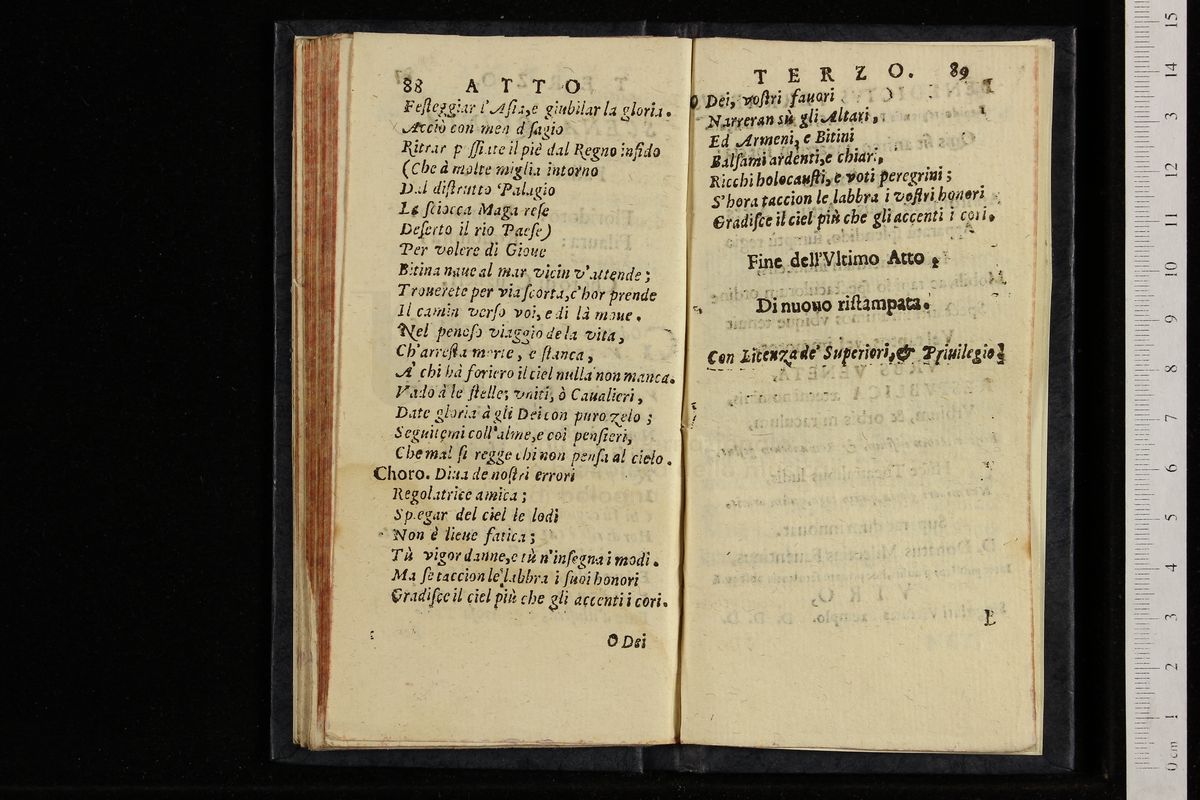 88 ATTO
Feſteggiar l'Aſia,e giubilar la gloria.
Acciò con men d ſagio
Ritrar p ſſiate il piè dal Regno infido
(Che à molte miglia intorno
Dal diſtrutto Palagio
La ſciocca Maga reſe
Deſerto il rio Paeſe)
Per volere di Gioue
Bitina naue al mar vicin v'attende;
Trouerete per via ſcorta,c'hor prende
Il camin verſo voi, e di là moue.
Nel penoſo viaggio de la vita,
Ch'arreſta morte, e ſtanca,
A' chi hà foriero il ciel nulla non manca.
Vado à le ſtelle; vniti, ò Caualieri,
Date gloria à gli Dei con puro zelo;
Seguitemi coll'alme,e coi penſieri,
Che mal ſi regge chi non penſa al cielo.
Choro. Diua de noſtri errori
Regolatrice amica;
Sp egar del ciel le lodi
Non è lieue fatica;
Tù vigor danne,e tù n'inſegna i modi.
Ma ſe taccion le labbra i ſuoi honori
Gradiſce il ciel più che gli accenti i cori.
O Dei
TERZO. 89
O Dei, voſtri fauori
Narreran sù gli Altari,
Ed Armeni, e Bitini
Balſami ardenti,e chiari,
Ricchi holocauſti, e voti peregrini;
S'hora taccion le labbra i voſtri honori
Gradiſce il ciel più che gli accenti i cori.
Fine dell'Vltimo Atto.
Di nuouo riſtampata.
Con Licenza de' Superiori, & Priuilegio.